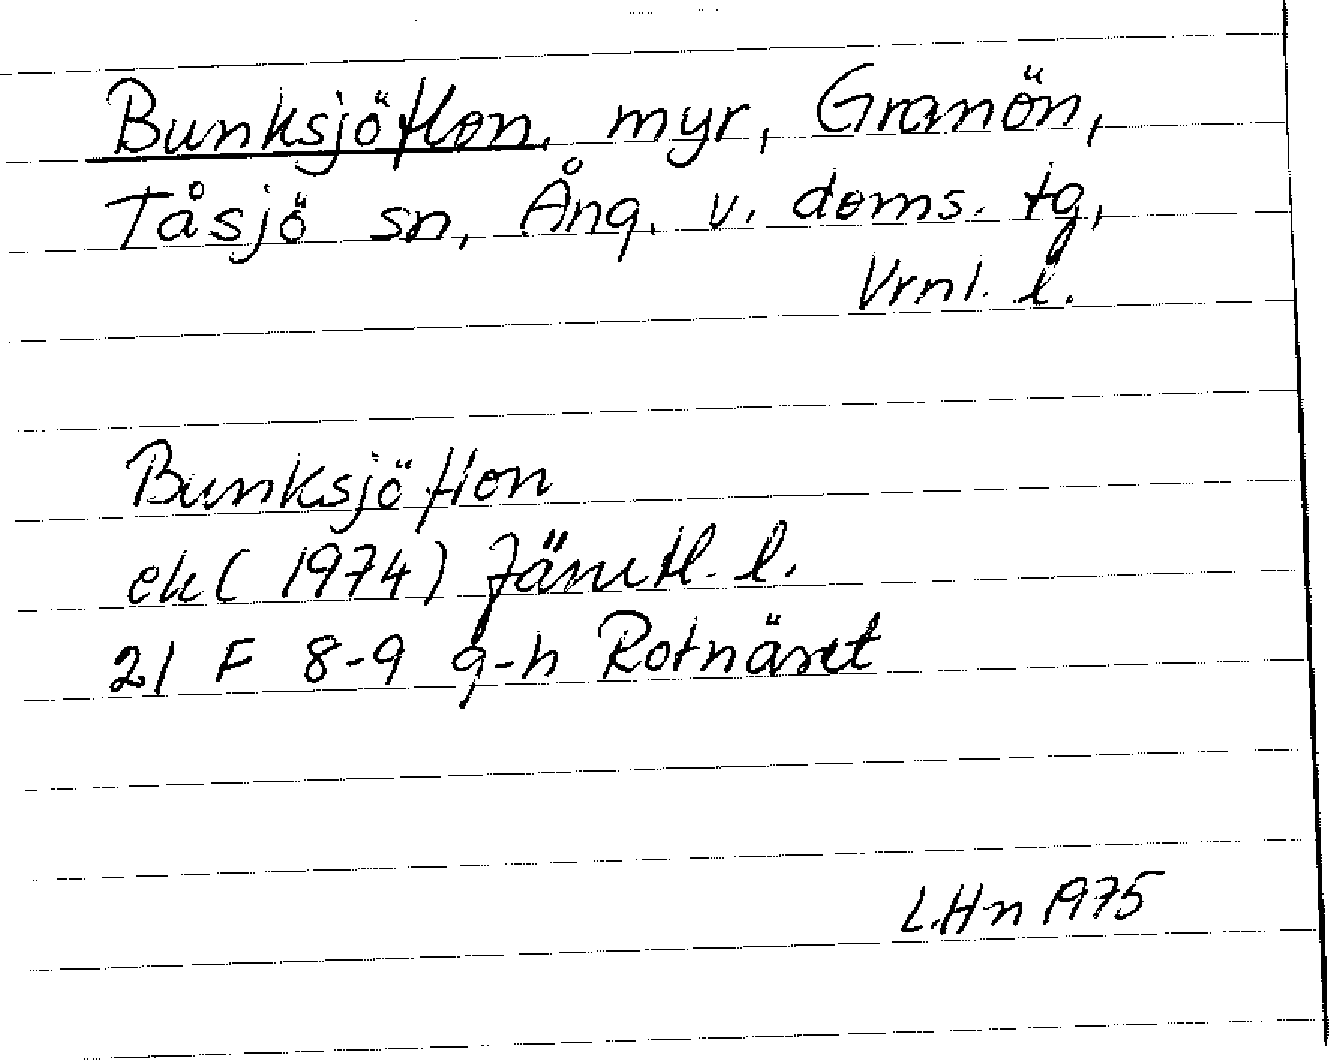 Bunksjöflon, myr, Granön,
Tåsjö sn, Ång. v. doms. tg,
Vrnl. l.
Bunksjöflon
ek (1974) Jämtl. l.
21 F 8-9 g-h Rotnäset
L.Hn 1975